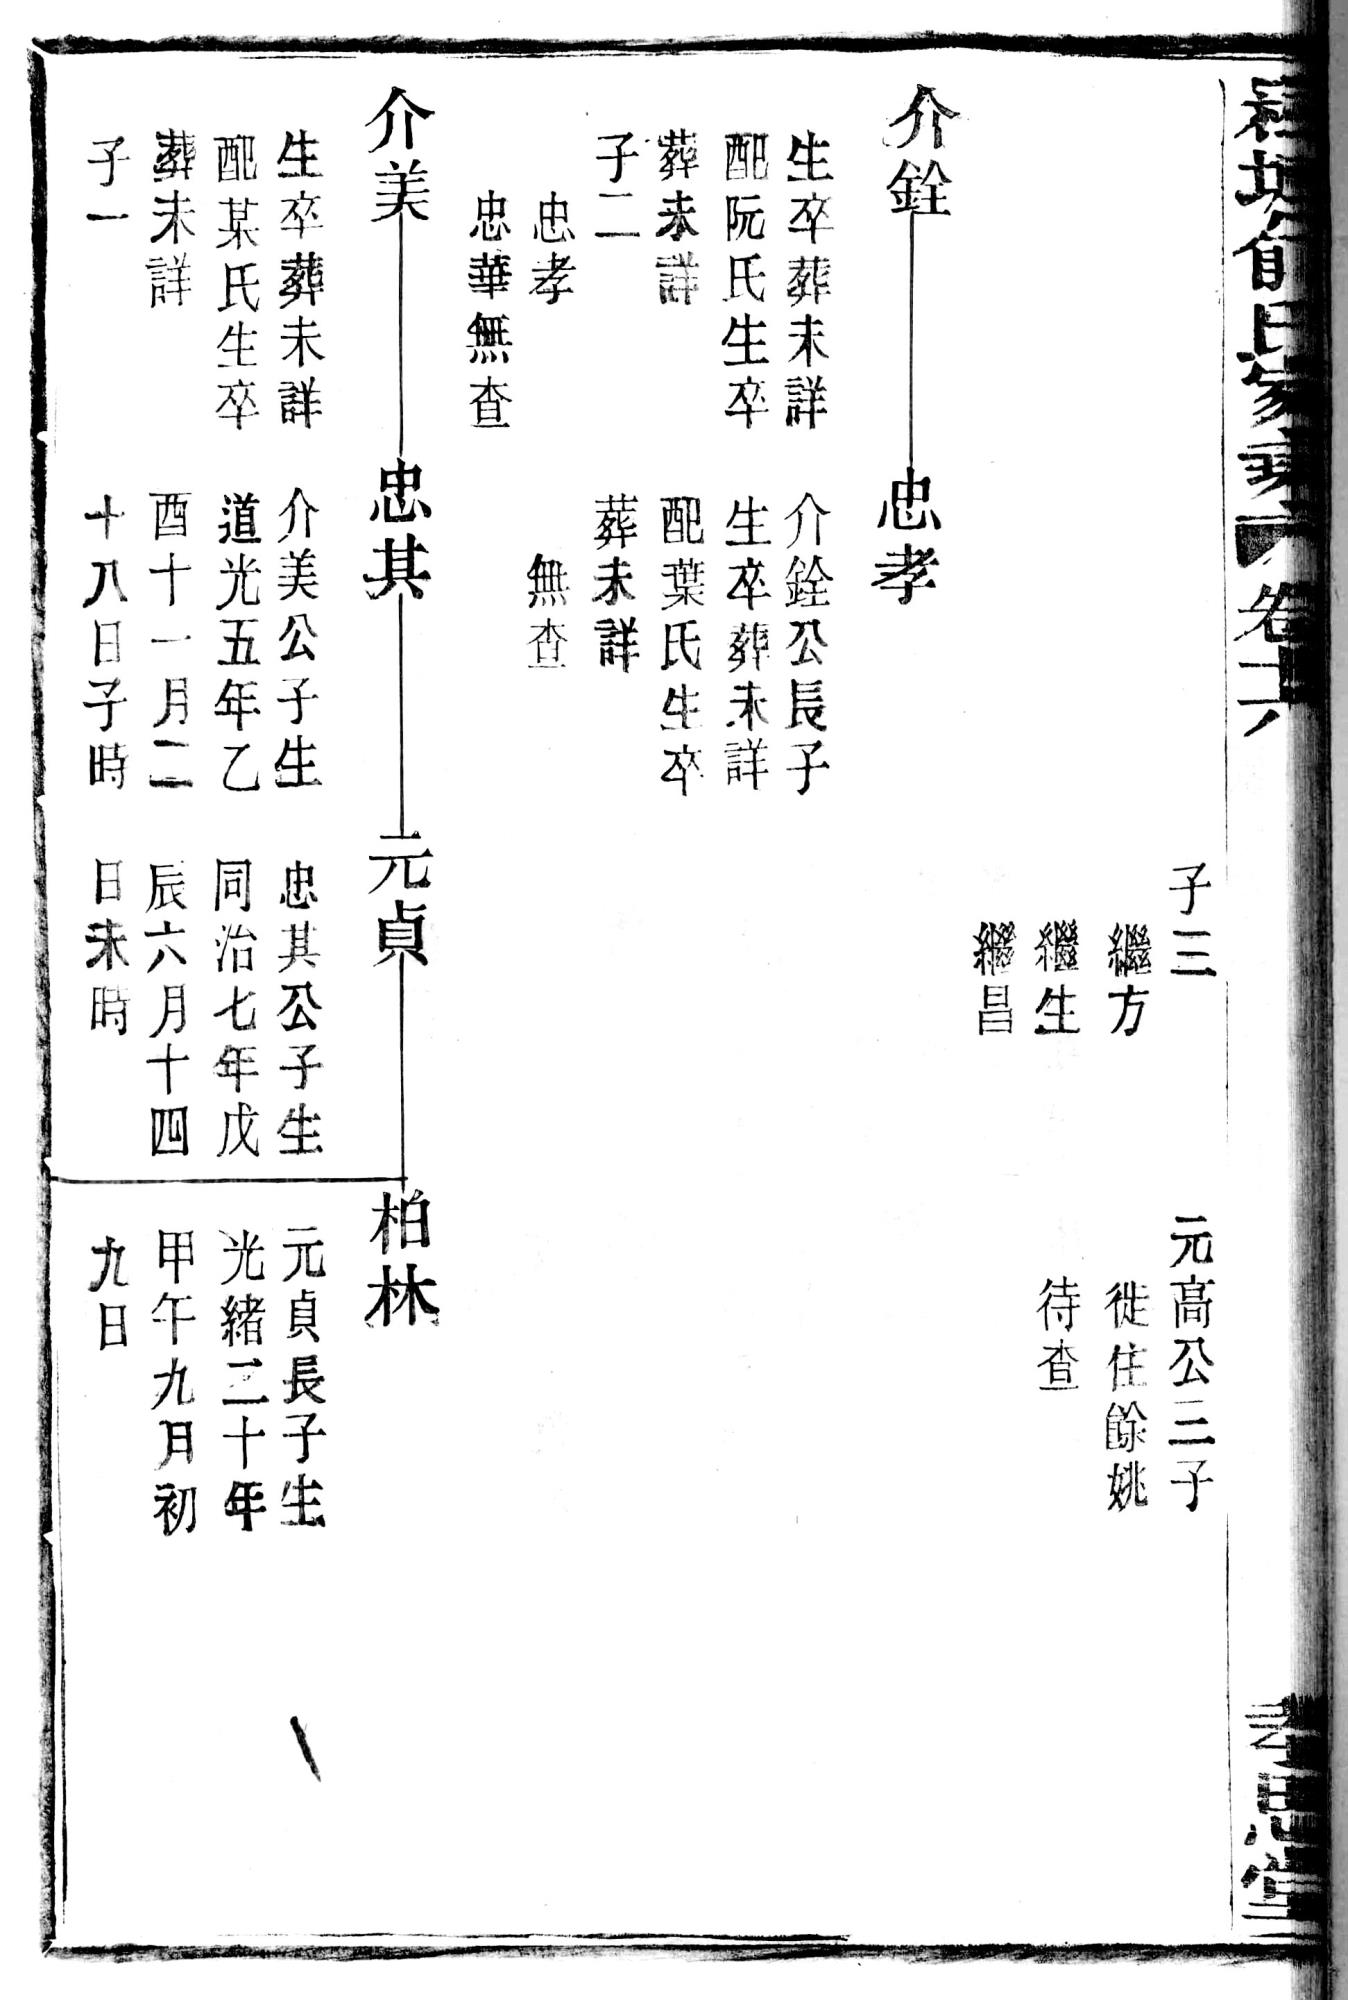 俞氏家乘
卷十六
孝思堂
子三
繼方
繼生
繼昌
元高公三子
徙住餘姚
待查
介銓
生卒葬未詳
配阮氏生卒
葬未詳
子二
忠孝
忠華無查
忠孝
介銓公長子
生卒葬未詳
配葉氏生卒
葬未詳
無查
介美
生卒葬未詳
配某氏生卒
葬未詳
子一
忠其
介美公子生
道光五年乙
酉十一月二
十八日子時
元貞
忠其公子生
同治七年戊
辰六月十四
日未時
柏林
元貞長子生
光緒二十年
甲午九月初
九日